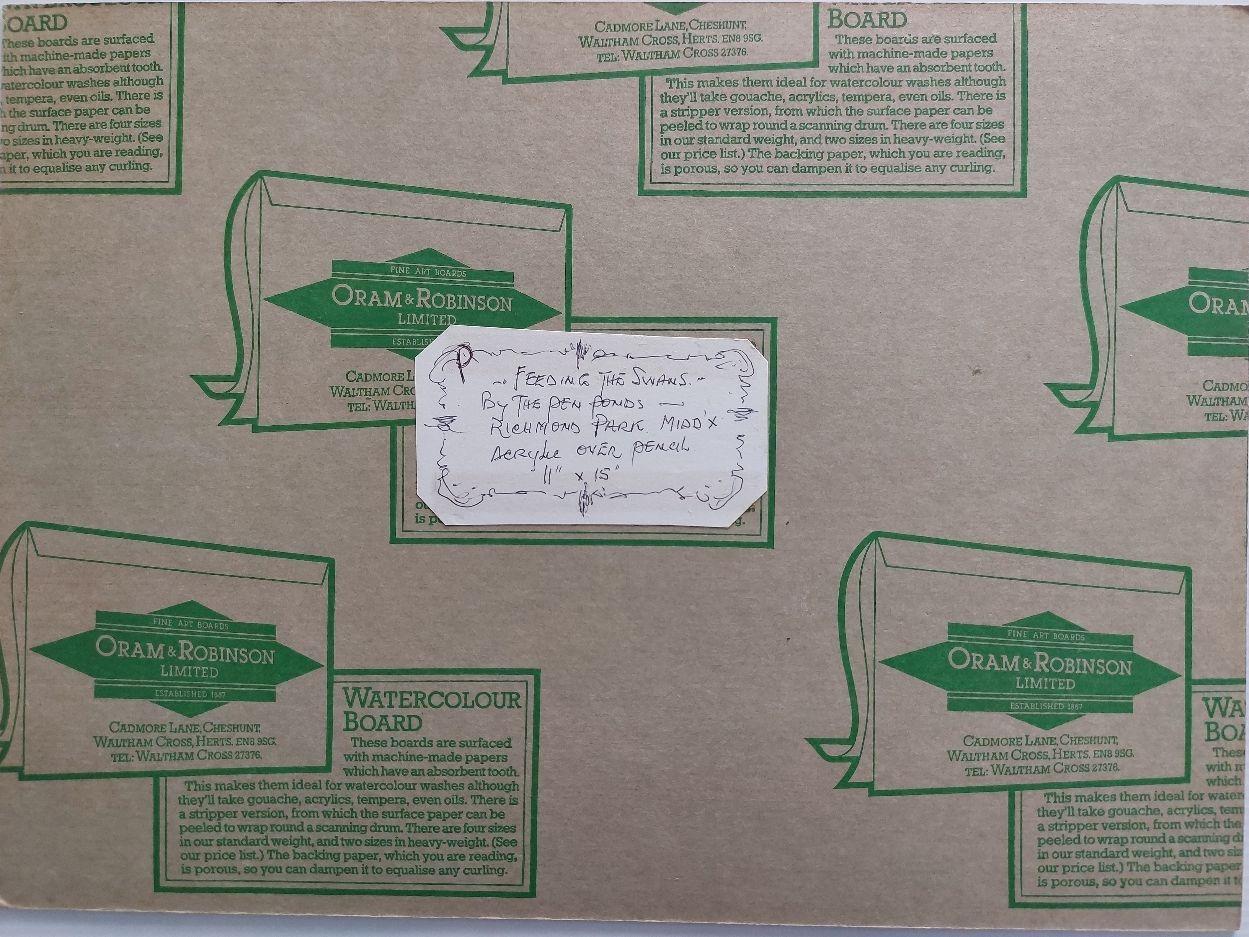 OARD
These boards are surfaced
ith machine-made papers
hich have an absorbent tooth.
atercolour washes although
, tempera, even oils. There is
h the surface paper can be
ng drum. There are four sizes
o sizes in heavy-weight. (See
aper, which you are reading,
n it to equalise any curling.
CADMORE LANE, CHESHUNT,
WALTHAM CROSS, HERTS. EN8 9SG.
TEL: WALTHAM CROSS 27376.
BOARD
These boards are surfaced
with machine-made papers
which have an absorbent tooth.
This makes them ideal for watercolour washes although
they'll take gouache, acrylics, tempera, even oils. There is
a stripper version, from which the surface paper can be
peeled to wrap round a scanning drum. There are four sizes
in our standard weight, and two sizes in heavy-weight. (See
our price list.) The backing paper, which you are reading,
is porous, so you can dampen it to equalise any curling.
FINE ART BOARDS
ORAM & ROBINSON
LIMITED
ESTABLIS
CADMORE L
WALTHAM CRO
TEL: WALTH
P
~ FEEDING THE SWANS. ~
BY THE PEN PONDS ~
RICHMOND PARK MIDD'X
ACRYLIC OVER PENCIL
11" x 15"
ou
is p
g.
ORAM
L
CADMO
WALTHAM
TEL: W
FINE ART BOARDS
ORAM & ROBINSON
LIMITED
ESTABLISHED 1887
CADMORE LANE, CHESHUNT,
WALTHAM CROSS, HERTS. EN8 9SG.
TEL: WALTHAM CROSS 27376.
WATERCOLOUR
BOARD
These boards are surfaced
with machine-made papers
which have an absorbent tooth.
This makes them ideal for watercolour washes although
they'll take gouache, acrylics, tempera, even oils. There is
a stripper version, from which the surface paper can be
peeled to wrap round a scanning drum. There are four sizes
in our standard weight, and two sizes in heavy-weight. (See
our price list.) The backing paper, which you are reading,
is porous, so you can dampen it to equalise any curling.
FINE ART BOARDS
ORAM & ROBINSON
LIMITED
ESTABLISHED 1887
CADMORE LANE, CHESHUNT,
WALTHAM CROSS, HERTS. EN8 9SG.
TEL: WALTHAM CROSS 27376.
WA
BOA
Thes
with m
which
This makes them ideal for water
they'll take gouache, acrylics, tem
a stripper version, from which the
peeled to wrap round a scanning d
in our standard weight, and two si
our price list.) The backing paper
is porous, so you can dampen it t